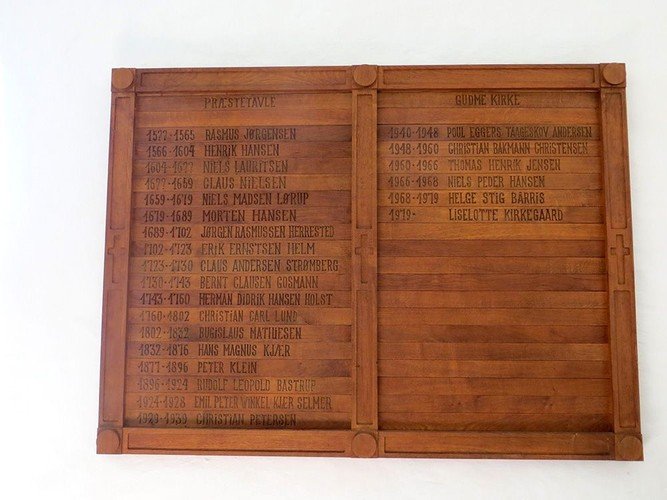 PRÆSTETAVLE
1537-1565 RASMUS JØRGENSEN
1566-1604 HENRIK HANSEN
1604-1627 NIELS LAURITSEN
1627-1659 CLAUS NIELSEN
1659-1679 NIELS MADSEN LØRUP
1679-1689 MORTEN HANSEN
1689-1702 JØRGEN RASMUSSEN HERRESTED
1702-1723 ERIK ERNSTSEN HELM
1723-1730 CLAUS ANDERSEN STRØMBERG
1730-1743 BERNT CLAUSEN GOSMANN
1743-1760 HERMAN DIDRIK HANSEN HOLST
1760-1802 CHRISTIAN CARL LUND
1802-1832 BUGISLAUS MATHIESEN
1832-1876 HANS MAGNUS KJÆR
1877-1896 PETER KLEIN
1896-1924 RUDOLF LEOPOLD BASTRUP
1924-1928 EMIL PETER WINKEL KJÆR SELMER
1929-1939 CHRISTIAN PETERSEN
GUDME KIRKE
1940-1948 POUL EGGERS TAAGESKOV ANDERSEN
1948-1960 CHRISTIAN BAKMANN CHRISTENSEN
1960-1966 THOMAS HENRIK JENSEN
1966-1968 NIELS PEDER HANSEN
1968-1979 HELGE STIG BARRIS
1979- LISELOTTE KIRKEGAARD